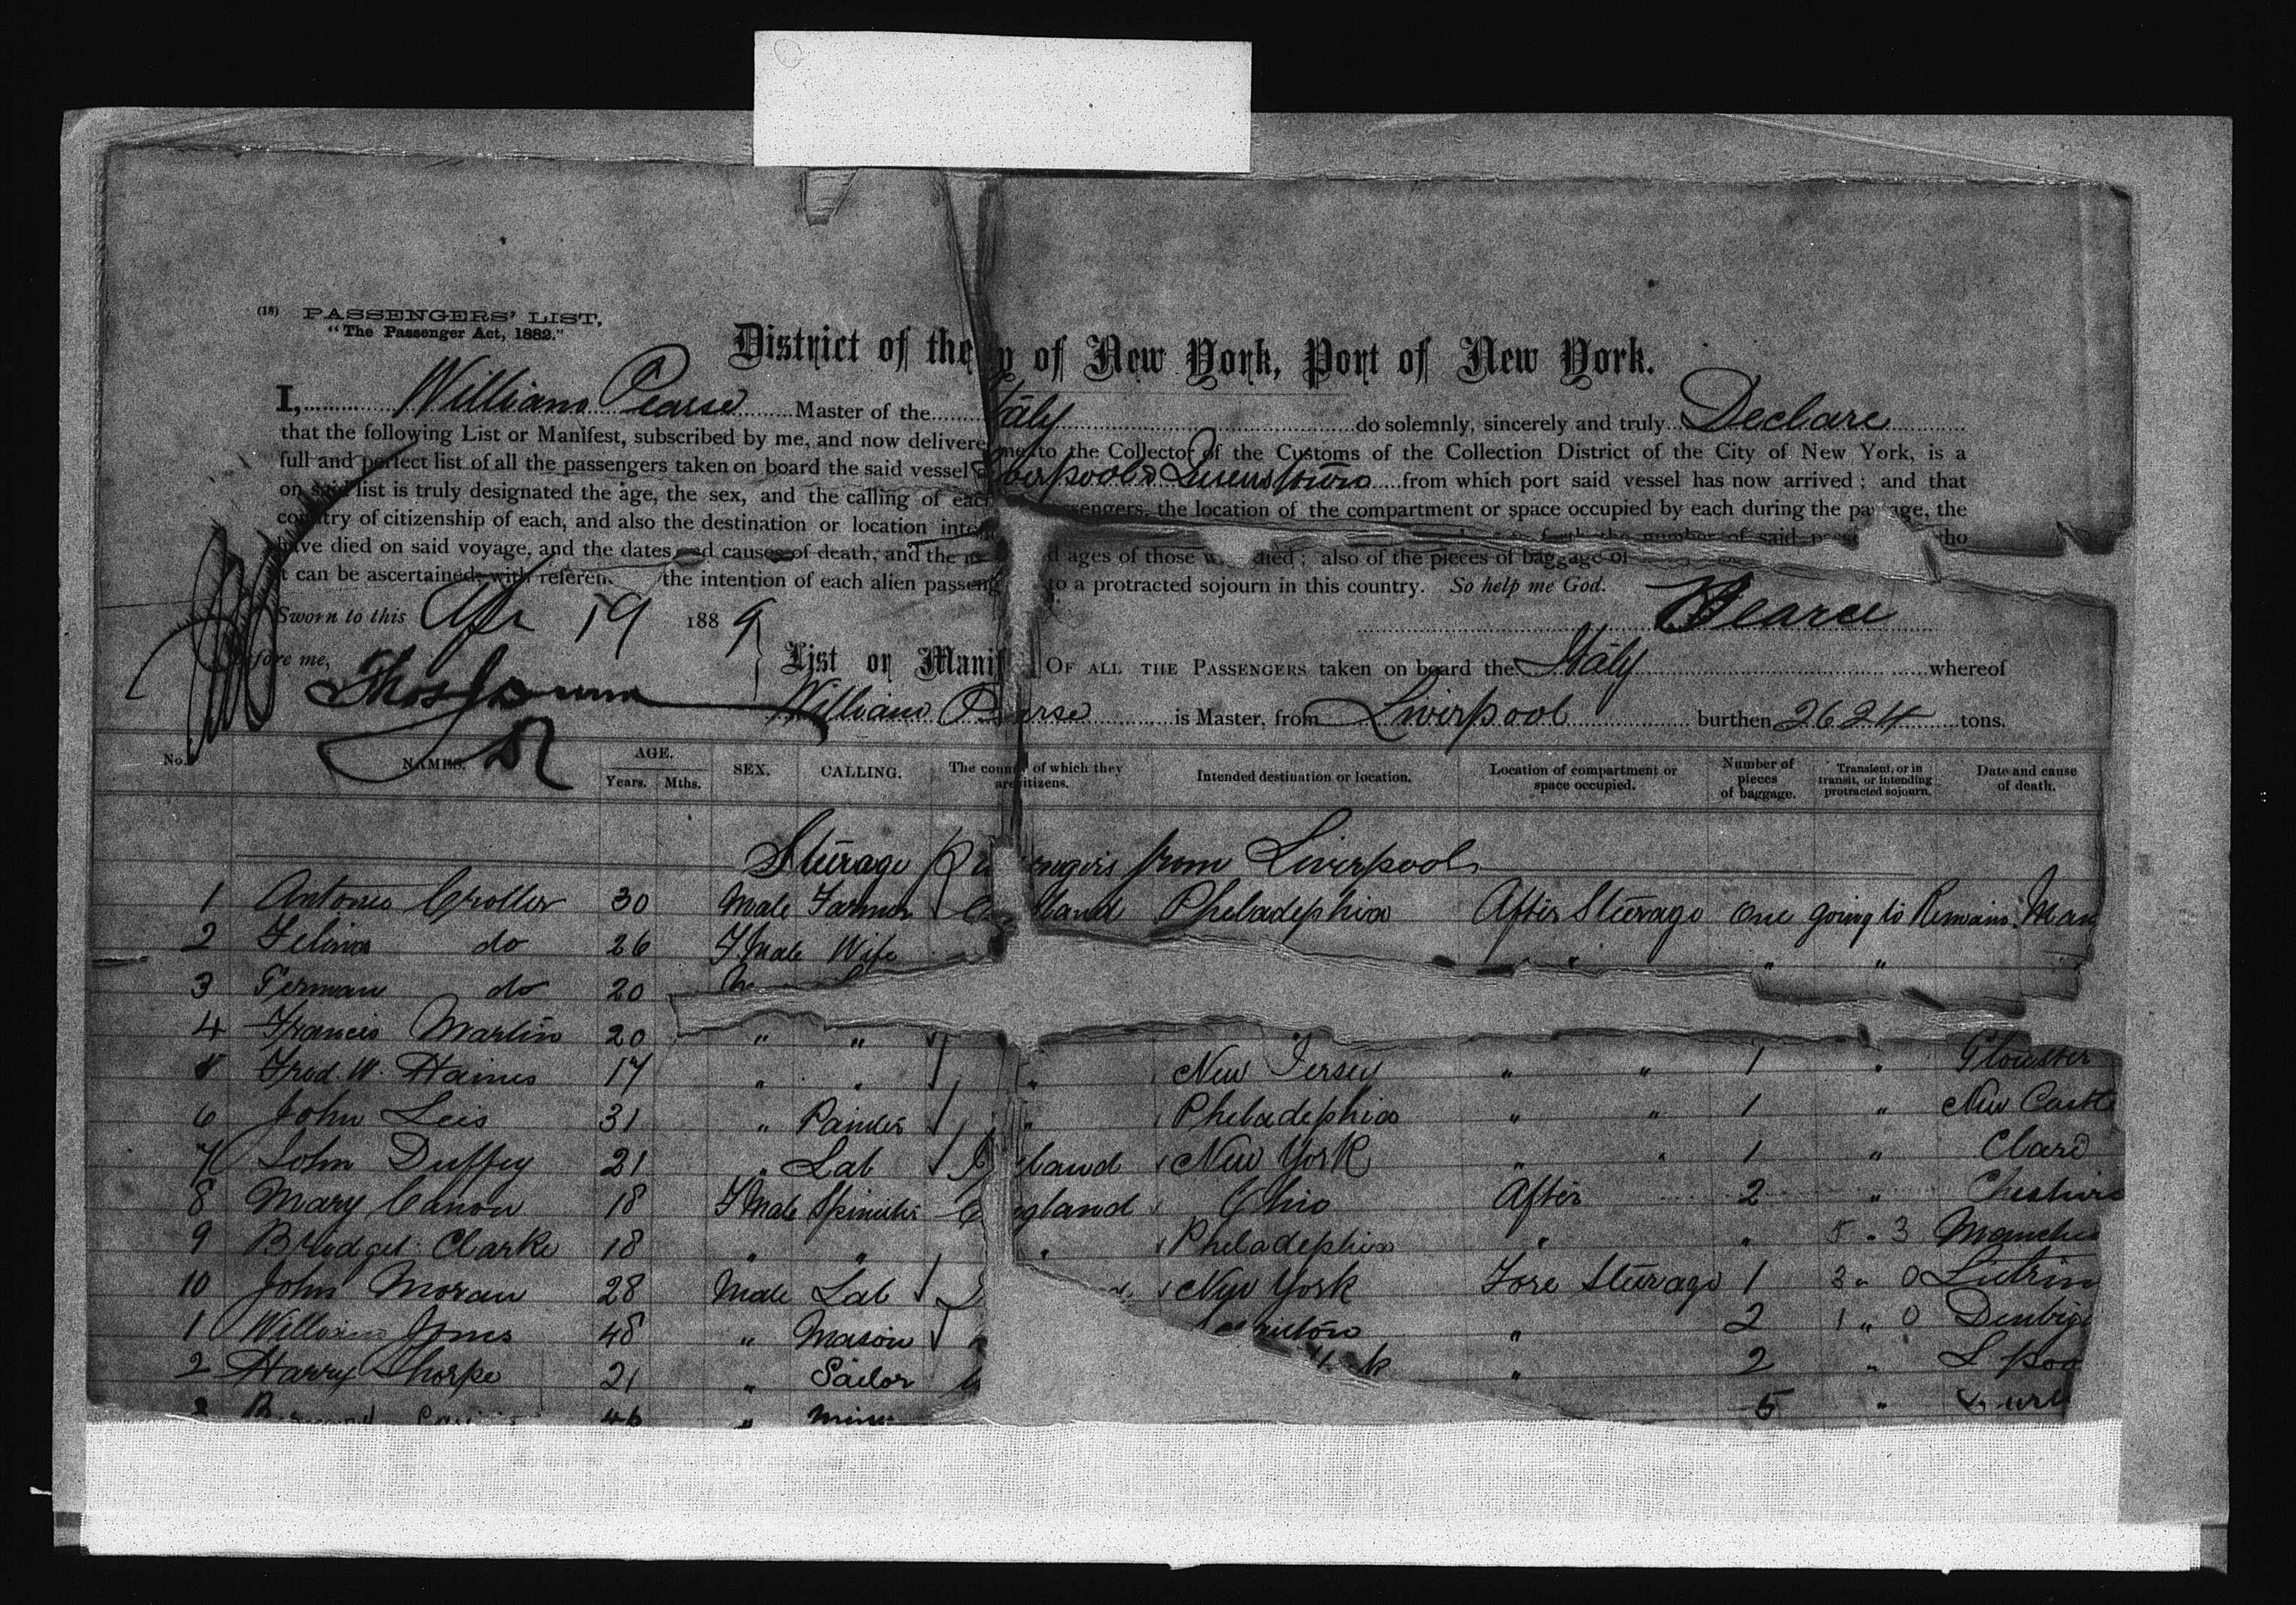 (18) PASSENGERS' LIST.
"The Passenger Act, 1882."
District of the y of New York, Port of New York.
I, William Pearse Master of the Italy do solemnly, sincerely and truly Declare
that the following List or Manifest, subscribed by me, and now delivere me to the Collector of the Customs of the Collection District of the City of New York, is a
full and perfect list of all the passengers taken on board the said vessel Liverpool & Queenstown from which port said vessel has now arrived; and that
on said list is truly designated the age, the sex, and the calling of each ssengers, the location of the compartment or space occupied by each during the passage, the
country of citizenship of each, and also the destination or location inte the number of said who
have died on said voyage, and the dates and causes of death, and the d ages of those w died; also of the pieces of baggage of
t can be ascertained, with referen the intention of each alien passeng to a protracted sojourn in this country. So help me God.
Sworn to this Apr 19 1889 Pearce
before me,
List or Manif OF ALL THE PASSENGERS taken on board the Italy whereof
William Pearse is Master, from Liverpool burthen 2624 tons.
No. NAMES. AGE. Years. Mths. SEX. CALLING. The country of which they are citizens. Intended destination or location. Location of compartment or space occupied. Number of pieces of baggage. Transient, or in transit, or intending protracted sojourn. Date and cause of death.
Sturage from Liverpool
1 Antonio Croller 30 Male Farmer land Pheladephia After Sturage One going to Remain Man
2 Felina do 26 F.Male Wife " " " "
3 Ferman do 20
4 Francis Martin 20 " "
Fred. W. Haines 17 " " " New Jersey " " 1 " Glouster
6 John Leis 31 " Painter " Pheladephia " " 1 " New Castle
7 John Duffey 21 " Lab land New York " " 1 " Clare
8 Mary Canon 18 F Male Spinster England Ohio After 2 " Cheshire
9 Bridget Clarke 18 " " " Pheladephia " " 5 " 3 Manche
10 John Moran 28 Male Lab New York Fore Sturage 1 3 " 0 Lietrim
1 William Jones 48 " Mason " 2 1 " 0 Denbig
2 Harry Thorpe 21 " Sailor k " 2 " L poo
46 " 5 "